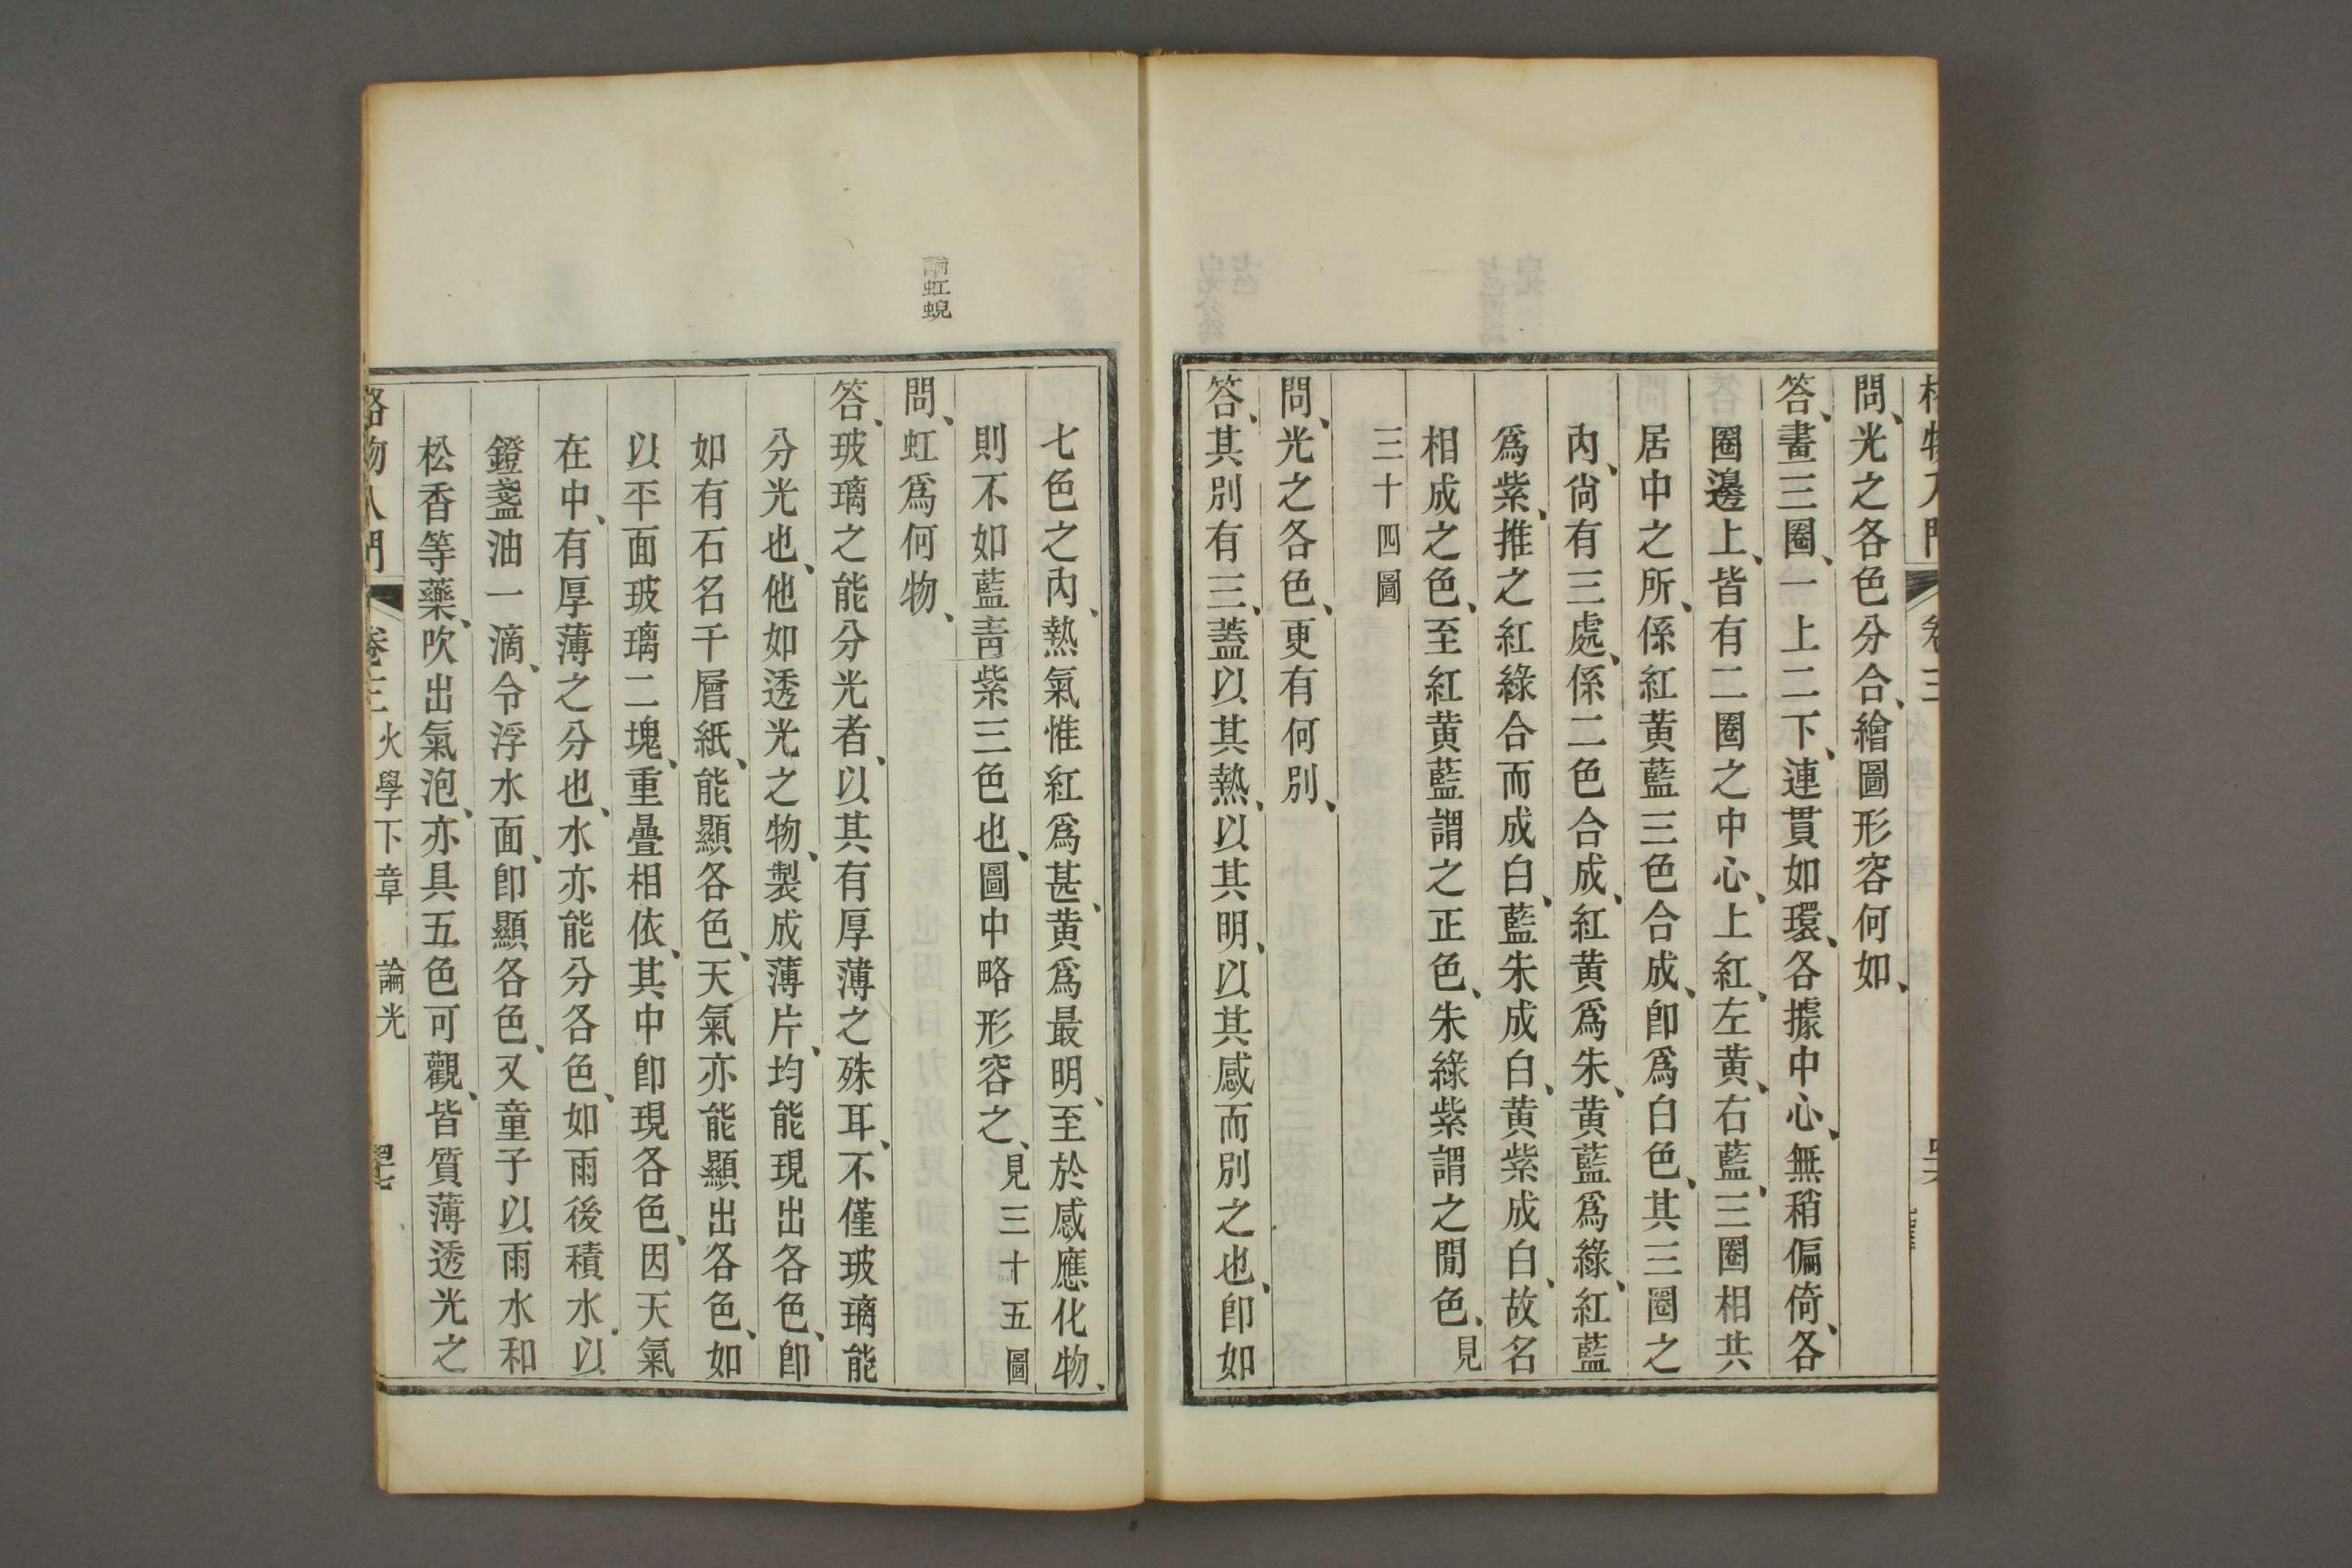 格物入門 卷三
問、光之各色分合、繪圖形容何如、
答、畫三圈、一上二下、連貫如環、各據中心、無稍偏倚、各
圈邊上、皆有二圈之中心、上紅、左黃、右藍、三圈相共
居中之所、係紅黃藍三色合成、卽爲白色、其三圈之
內、尙有三處、係二色合成、紅黃爲朱、黃藍爲綠、紅藍
爲紫、推之紅綠合而成白、藍朱成白、黃紫成白、故名
相成之色、至紅黃藍謂之正色、朱綠紫謂之閒色、見
三十四圖
問、光之各色、更有何別、
答、其別有三、蓋以其熱、以其明、以其感而別之也、卽如
論虹蜺
七色之內、熱氣惟紅爲甚、黃爲最明、至於感應化物、
則不如藍靑紫三色也、圖中略形容之、見三十五圖
問、虹爲何物、
答、玻璃之能分光者、以其有厚薄之殊耳、不僅玻璃能
分光也、他如透光之物、製成薄片、均能現出各色、卽
如有石名千層紙、能顯各色、天氣亦能顯出各色、如
以平面玻璃二塊、重疊相依、其中卽現各色、因天氣
在中、有厚薄之分也、水亦能分各色、如雨後積水、以
鐙盞油一滴、令浮水面、卽顯各色、又童子以雨水和
松香等藥、吹出氣泡、亦具五色可觀、皆質薄透光之
格物入門 卷三 火學下章 論光 四十七